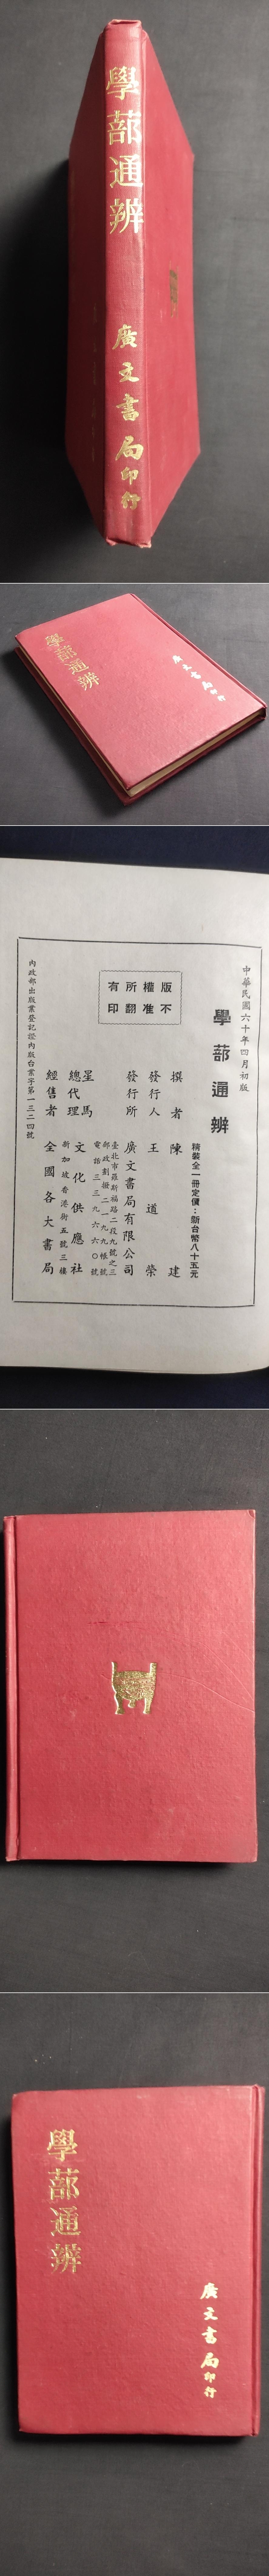 學蔀通辨
廣文書局印行
學蔀通辨
廣文書局印行
中華民國六十年四月初版
學蔀通辨
精裝全一冊定價：新台幣八十五元
版權所有
不准翻印
撰者 陳建
發行人 王道榮
發行所 廣文書局有限公司
臺北市羅斯福路二段九號之三
郵政劃撥二一九九帳號
電話三三九六六〇號
星馬總代理 文化供應社
新加坡香港街五號三樓
經售者 全國各大書局
內政部出版業登記證內版台業字第一三二四號
學蔀通辨
廣文書局印行